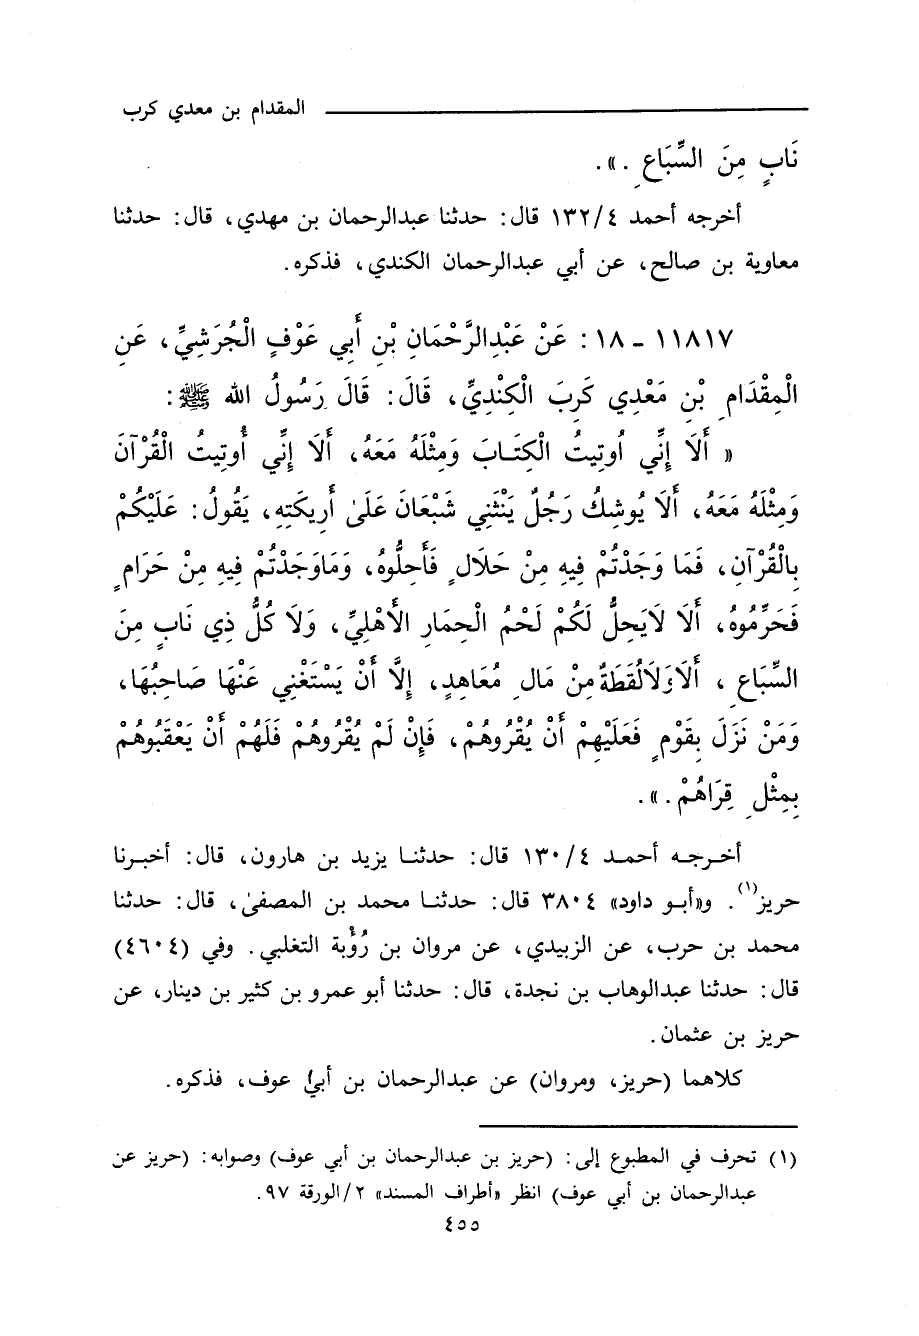 المقدام بن معدي كرب
نَابٍ مِنَ السِّبَاعِ .».
أخرجه أحمد ١٣٢/٤ قال: حدثنا عبدالرحمان بن مهدي، قال: حدثنا
معاوية بن صالح، عن أبي عبدالرحمان الكندي، فذكره.
١١٨١٧ - ١٨ : عَنْ عَبْدِالرَّحْمَانِ بْنِ أَبِي عَوْفٍ الْجُرَشِيِّ، عَنِ
الْمِقْدَامِ بْنِ مَعْدِي كَرِبَ الْكِنْدِيِّ، قَالَ: قَالَ رَسُولُ الله ﷺ:
« أَلَا إِنِّي أُوتِيتُ الْكِتَابَ وَمِثْلَهُ مَعَهُ، أَلَا إِنِّي أُوتِيتُ الْقُرْآنَ
وَمِثْلَهُ مَعَهُ، أَلَا يُوشِكُ رَجُلٌ يَنْثَنِي شَبْعَانَ عَلَىٰ أَرِيكَتِهِ، يَقُولُ: عَلَيْكُمْ
بِالْقُرْآنِ، فَمَا وَجَدْتُمْ فِيهِ مِنْ حَلَالٍ فَأَحِلُّوهُ، وَمَاوَجَدْتُمْ فِيهِ مِنْ حَرَامٍ
فَحَرِّمُوهُ، أَلَا لَايَحِلُّ لَكُمْ لَحْمُ الْحِمَارِ الأَهْلِيِّ، وَلَا كُلُّ ذِي نَابٍ مِنَ
السِّبَاعِ ، أَلَاوَلَالُقَطَةٌ مِنْ مَالِ مُعَاهِدٍ، إِلَّا أَنْ يَسْتَغْنِي عَنْهَا صَاحِبُهَا،
وَمَنْ نَزَلَ بِقَوْمٍ فَعَلَيْهِمْ أَنْ يُقْرُوهُمْ، فَإِنْ لَمْ يُقْرُوهُمْ فَلَهُمْ أَنْ يَعْقُبُوهُمْ
بِمِثْلِ قِرَاهُمْ.».
أخرجه أحمد ١٣٠/٤ قال: حدثنا يزيد بن هارون، قال: أخبرنا
حريز(١). و«أبو داود» ٣٨٠٤ قال: حدثنا محمد بن المصفىٰ، قال: حدثنا
محمد بن حرب، عن الزبيدي، عن مروان بن رُؤْبة التغلبي. وفي (٤٦٠٤)
قال: حدثنا عبدالوهاب بن نجدة، قال: حدثنا أبو عمرو بن كثير بن دينار، عن
حريز بن عثمان.
كلاهما (حريز، ومروان) عن عبدالرحمان بن أبي عوف، فذكره.
(١) تحرف في المطبوع إلى: (حريز بن عبدالرحمان بن أبي عوف) وصوابه: (حريز عن
عبدالرحمان بن أبي عوف) انظر «أطراف المسند» ٢/الورقة ٩٧.
٤٥٥